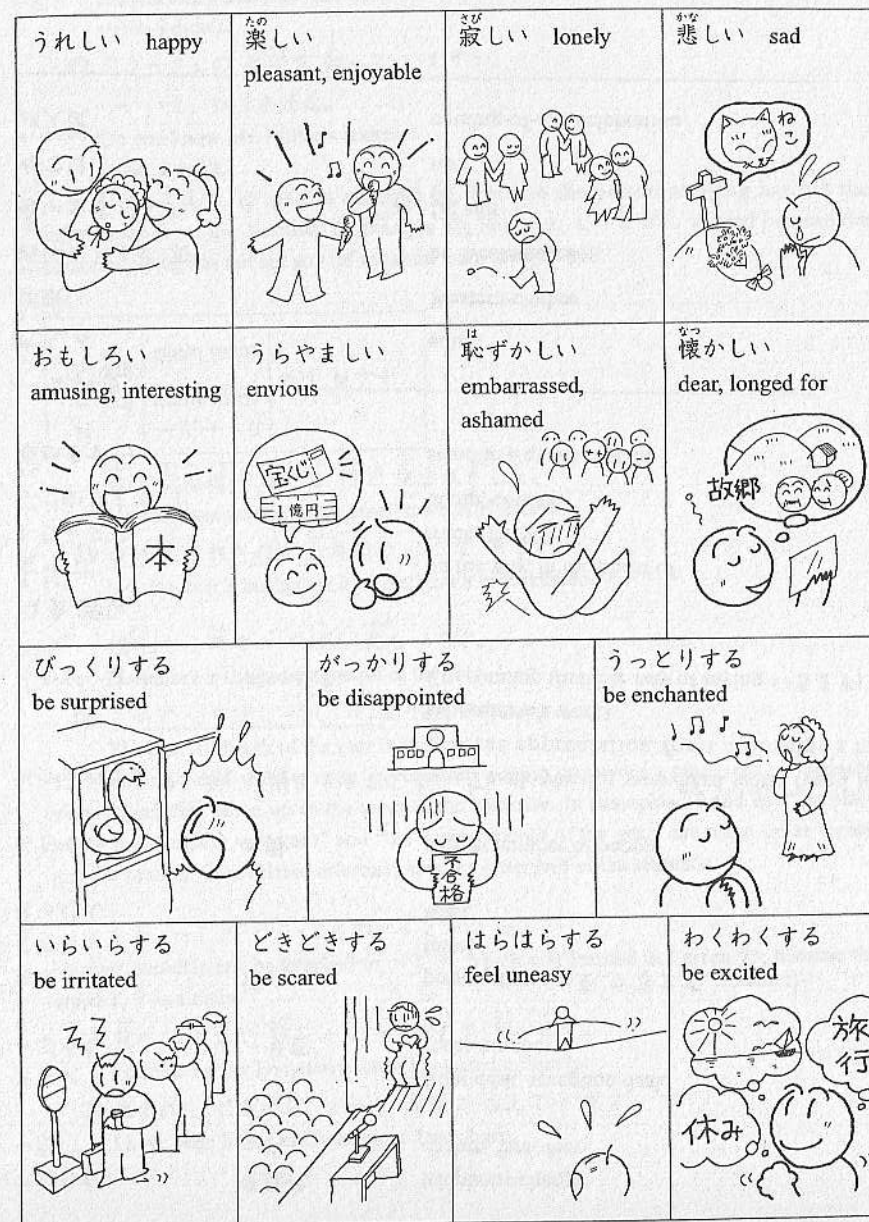 うれしい happy
たの
楽しい
pleasant, enjoyable
さび
寂しい lonely
かな
悲しい sad
ねこ
おもしろい
amusing, interesting
本
うらやましい
envious
宝くじ
1億円
は
恥ずかしい
embarrassed,
ashamed
なつ
懐かしい
dear, longed for
故郷
びっくりする
be surprised
がっかりする
be disappointed
不合格
うっとりする
be enchanted
いらいらする
be irritated
どきどきする
be scared
はらはらする
feel uneasy
わくわくする
be excited
旅行
休み